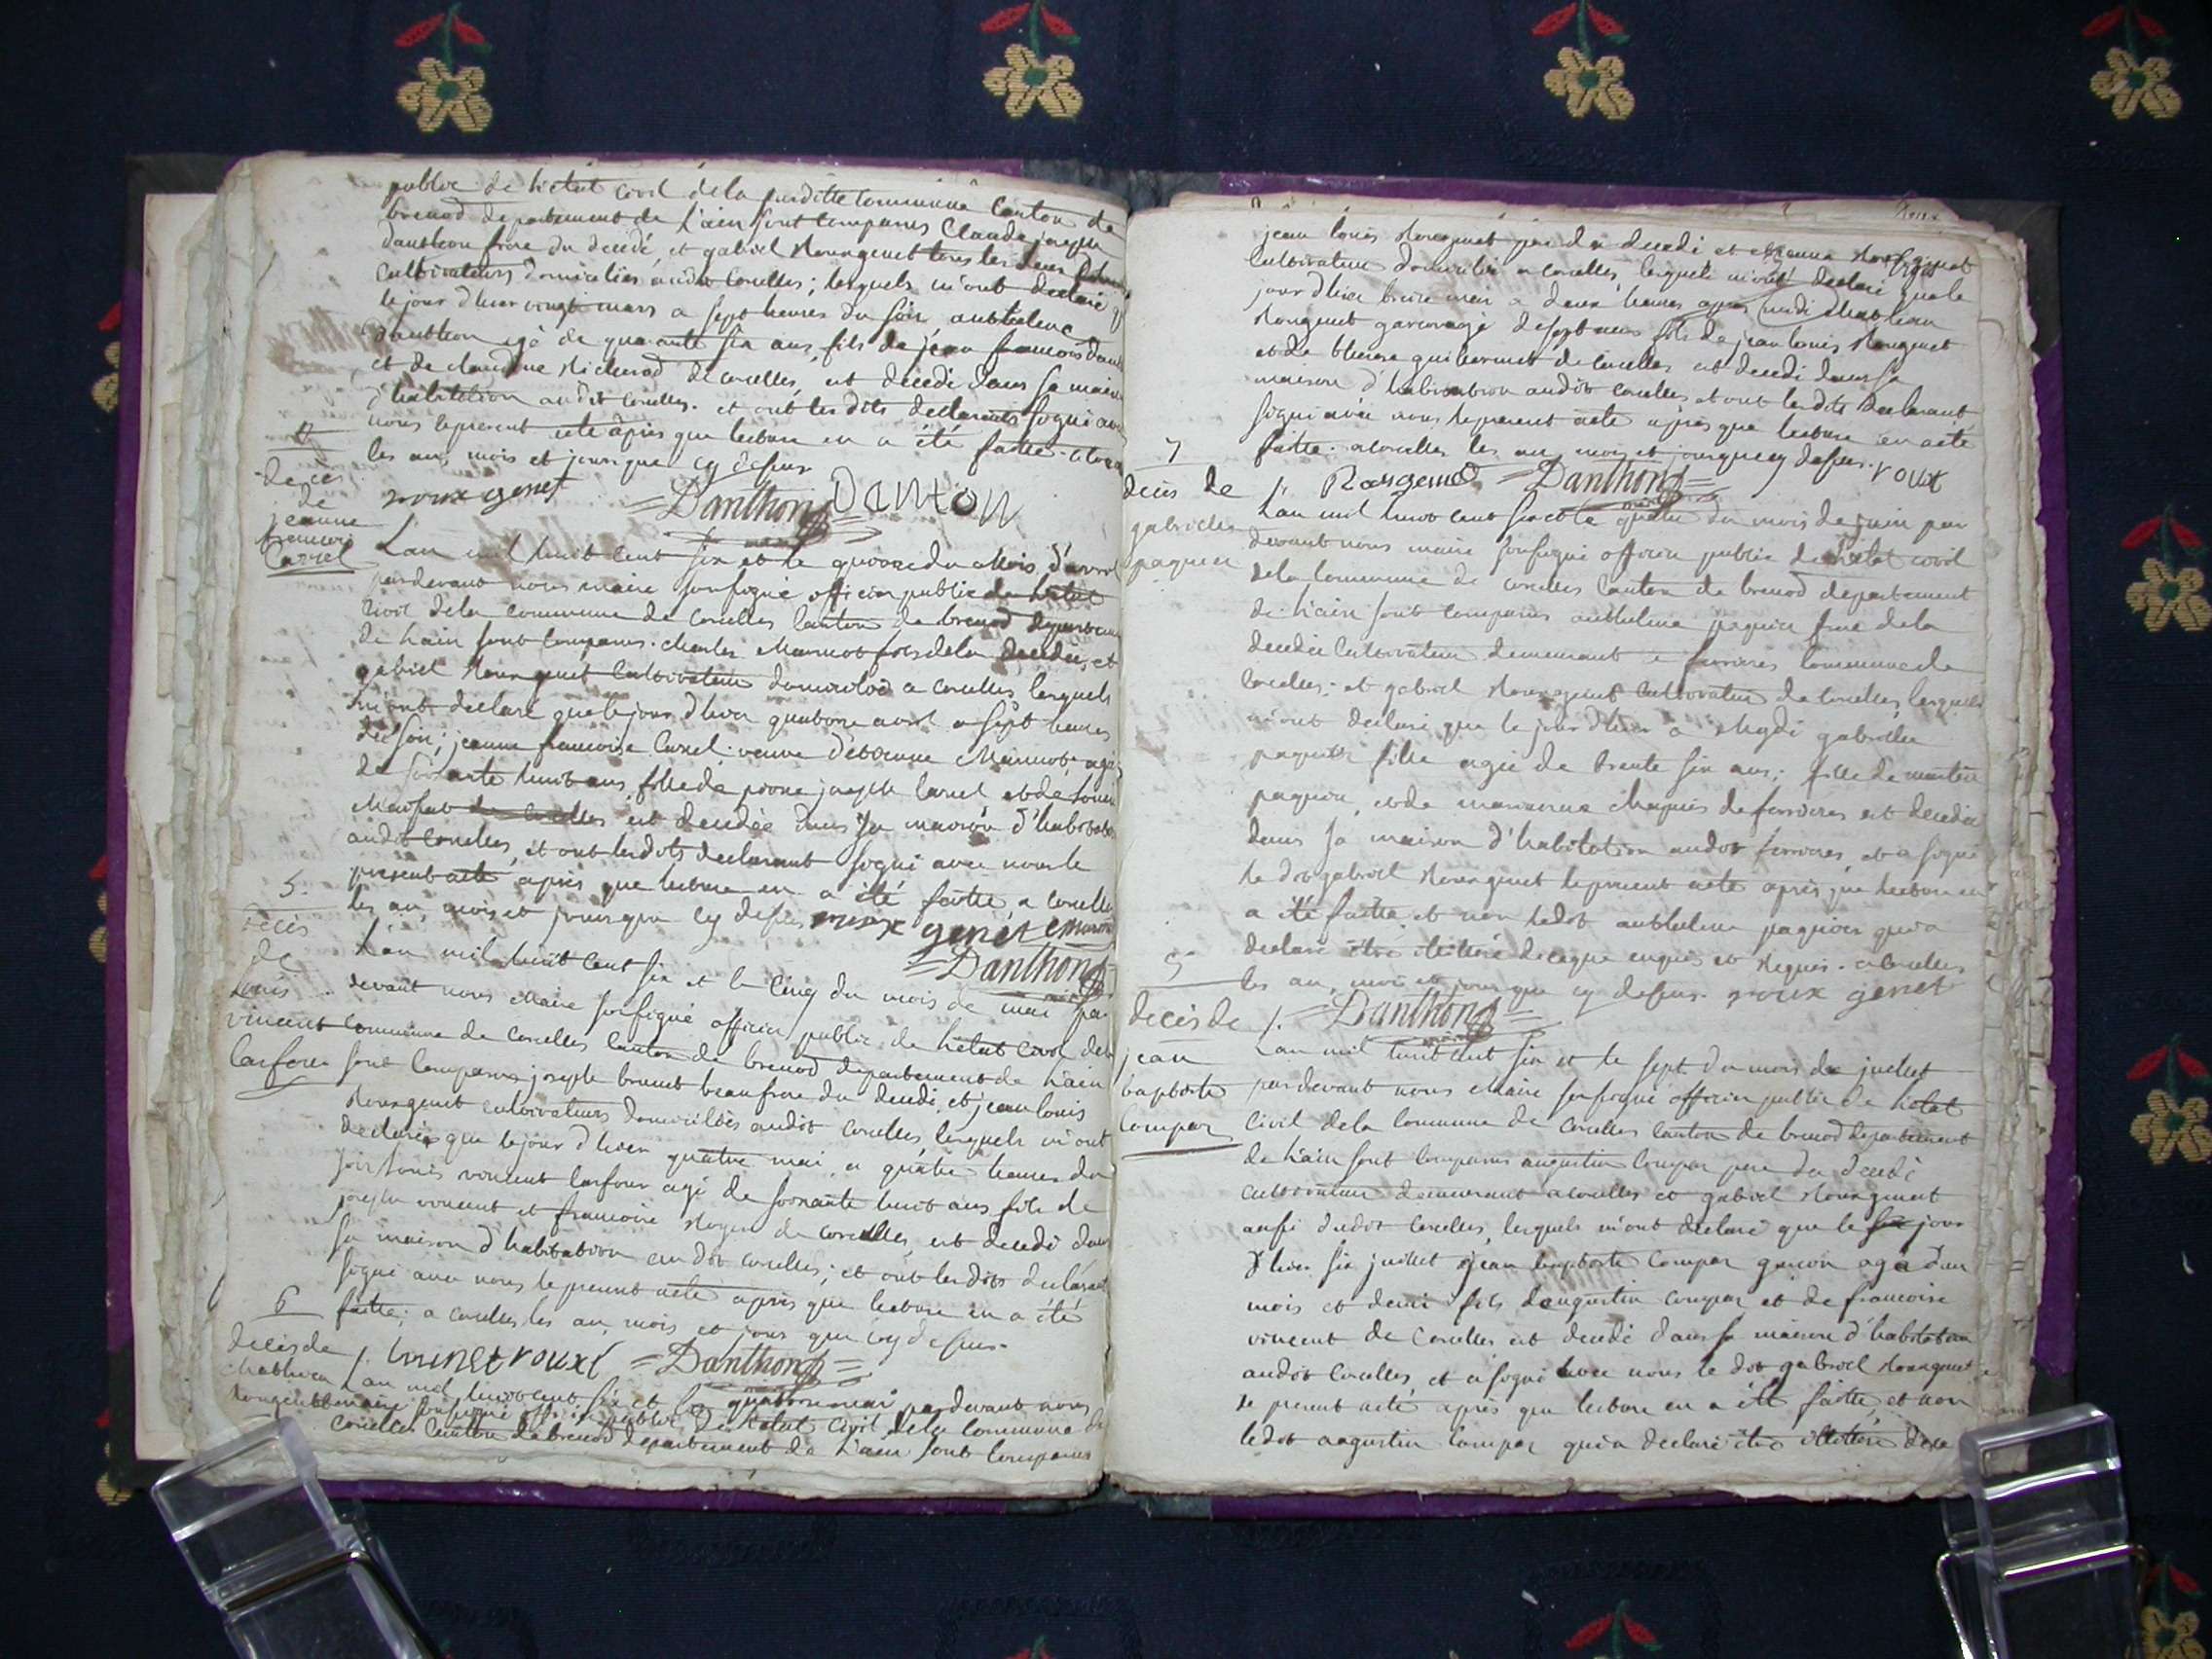 public de l'etat civil de la susditte commune canton de
brenod departement de l'ain sont comparus Claude joseph
danthon frere du decedé, et gabriel Rougenet tous les deux
cultivateurs domiciliés audit corcelles; lesquels m'ont declaré
le jour d'hier vingt mars a sept heures du soir anthelme
danthon agé de quarante six ans, fils de jean francois
et de claudine Michenod de corcelles, est decedé dans sa maison
d'habitation audit corcelles. et ont les dits declarants signé avec
nous le present acte après que lecture en a été faitte
les an, mois et jour que cy dessus
roux genet Danthon Danton
deces
de
jeanne
francoise
Carrel
L'an mil huit cent six et le quinze du mois d'avril
pardevant nous maire soussigné officier public de l'etat
civil de la commune de corcelles canton de brenod departement
de l'ain sont comparus. charles Marinot fils de la decedée, et
gabriel Rougenet cultivateur domicilié a corcelles, lesquels
m'ont declaré que le jour d'hier quatorze avril a sept heures
du soir; jeanne francoise Carrel veuve d'etienne Marinot, agée
de soixante huit ans, fille de pierre joseph Carrel et de
de corcelles est decedée dans sa maison d'habitation
audit corcelles, et ont les dits declarant signé avec nous le
present acte après que lecture en a été faitte, a corcelles
les an, mois et jour que cy dessus roux genet
Danthon
5.
décès
de
Louis
vincent
L'an mil huit cent six et le cinq du mois de mai par
devant nous Maire soussigné officier public de l'etat civil de la
commune de corcelles canton de brenod departement de l'ain
sont comparus joseph brunet beaufrere du decedé, et jean louis
Rougenet cultivateurs domiciliés audit corcelles, lesquels m'ont
declarés que le jour d'hier quatre mai a quatre heures du
soir louis vincent agé de soixante huit ans fils de
joseph vincent et francoise de corcelles, est decedé dans
sa maison d'habitation audit corcelles; et ont les dits declarants
signé avec nous le present acte après que lecture en a été
faitte; a corcelles les an, mois et jour que cy dessus.
j. brunet rouxj Danthon
6
décès de
L'an mil huit cent six et le quatorze mai pardevant nous
maire soussigné officier public de l'etat civil de la commune de
corcelles canton de brenod departement de l'ain sont comparus
jean louis Rougenet pere du decedé et etienne
cultivateurs domiciliés a corcelles, lesquels m'ont declaré que le
jour d'hier treize mai a deux heures apres midi
Rougenet garcon agé de sept ans fils de jean louis Rougenet
et de therese guillermet de corcelles est decedé dans sa
maison d'habitation audit corcelles et ont les dits declarant
signé avec nous le present acte après que lecture en a été
faitte. a corcelles les an, mois et jour que cy dessus. roux
j. Danthon
7
decès de
gabrielle
paquier
L'an mil huit cent six et le quatre du mois de juin par
devant nous maire soussigné officier public de l'etat civil
de la commune de corcelles canton de brenod departement
de l'ain sont comparus anthelme paquier frere de la
decedée cultivateur demeurant a ferrieres commune de
corcelles; et gabriel Rougenet cultivateur de corcelles, lesquels
m'ont declaré que le jour d'hier a Mydi gabrielle
paquier fille agée de trente six ans; fille de
paquier, et de marianne chapuis de ferrieres est decedée
dans sa maison d'habitation audit ferrieres, et a signé
le dit gabriel Rougenet le present acte après que lecture en
a été faitte et non le dit anthelme paquier qui a
declaré etre illitéré de ce que enquis et requis. a corcelles
les an, mois et jour que cy dessus. roux genet
j. Danthon
decès de
jean
baptiste
Compar
L'an mil huit cent six et le sept du mois de juillet
pardevant nous Maire soussigné officier public de l'etat
civil de la commune de corcelles canton de brenod departement
de l'ain sont comparus augustin Compar pere du decedé
cultivateur demeurant a corcelles et gabriel Rougenet
aussi dudit corcelles, lesquels m'ont declaré que le jour
d'hier six juillet jean baptiste Compar garcon agé d'un
mois et demi fils d'augustin Compar et de francoise
vincent de corcelles est decedé dans sa maison d'habitation
audit corcelles, et a signé avec nous le dit gabriel Rougenet
le present acte après que lecture en a été faitte, et non
ledit augustin Compar qui a declaré etre illitéré de ce